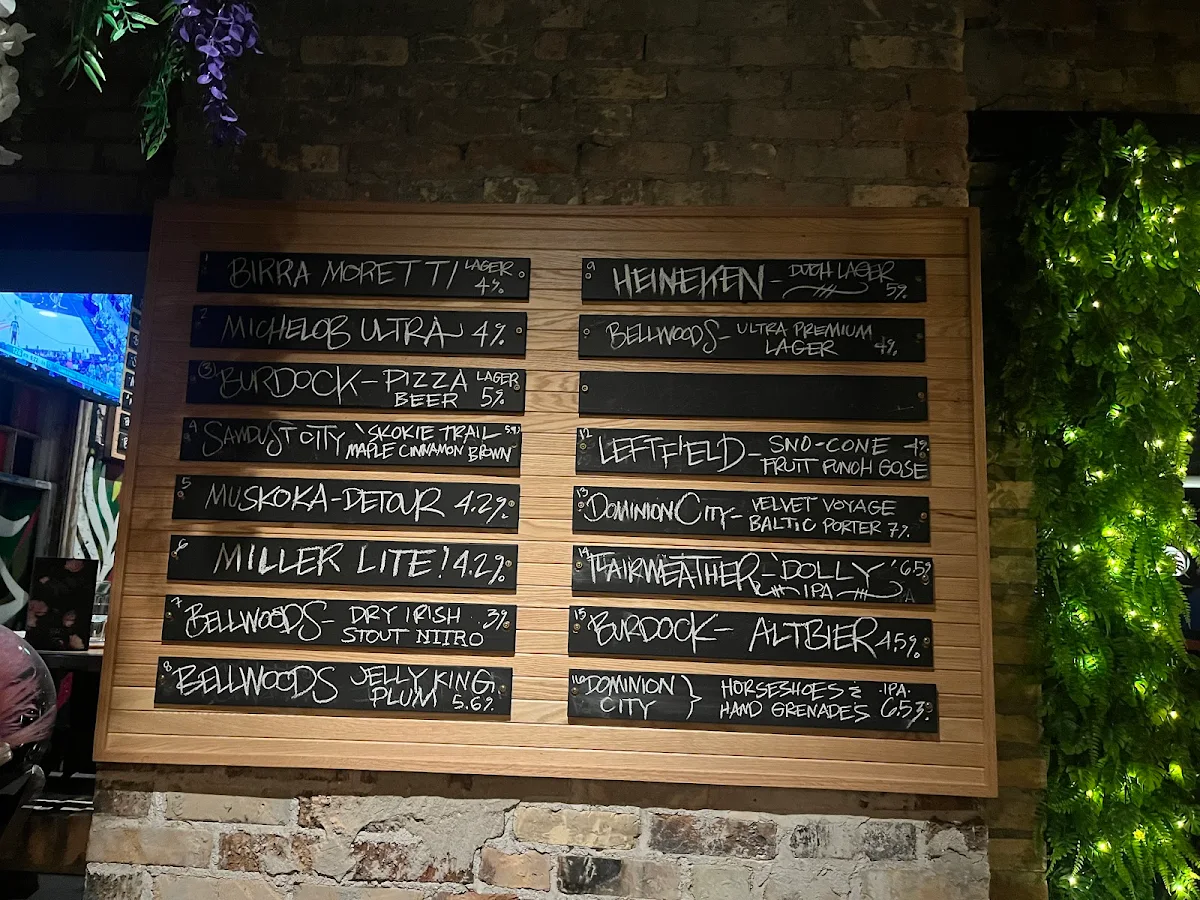 1 BIRRA MORETTI LAGER 4%
2 MICHELOB ULTRA 4%
3 BURDOCK - PIZZA LAGER
BEER 5%
4 SAWDUST CITY 'SKOKIE TRAIL
MAPLE CINNAMON BROWN
5 MUSKOKA-DETOUR 4.2%
6 MILLER LITE! 4.2%
7 BELLWOODS- DRY IRISH 3%
STOUT NITRO
8 BELLWOODS JELLY KING
PLUM 5.6%
9 HEINEKEN - DUTCH LAGER
5%
BELLWOODS- ULTRA PREMIUM
LAGER 4%
12 LEFTFIELD- SNO-CONE 4%
FRUIT PUNCH GOSE
13 DOMINION CITY- VELVET VOYAGE
BALTIC PORTER 7%
14 FAIRWEATHER- 'DOLLY' 6.5%
IPA
15 BURDOCK- ALTBIER 4.5%
16 DOMINION CITY } HORSESHOES & IPA
HAND GRENADES 6.5%